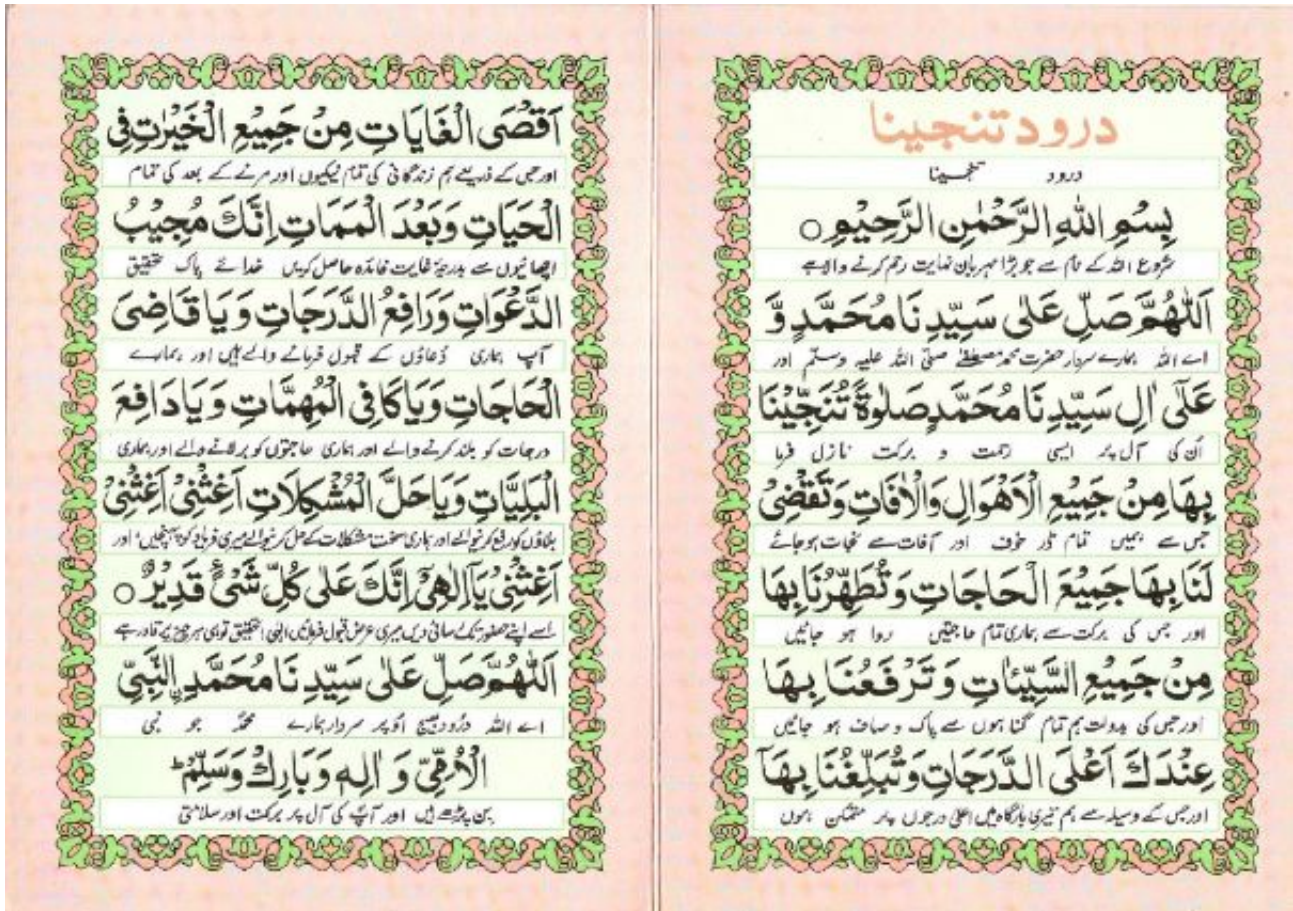 درود تنجینا
درود تنجینا
بِسْمِ اللهِ الرَّحْمٰنِ الرَّحِيْمِ ○
شروع اللہ کے نام سے جو بڑا مہربان نہایت رحم کرنے والا ہے
اَللّٰهُمَّ صَلِّ عَلٰى سَيِّدِنَا مُحَمَّدٍ وَّ
اے اللہ ہمارے سردار حضرت محمد مصطفےٰ صلی اللہ علیہ وسلم اور
عَلٰٓى اٰلِ سَيِّدِنَا مُحَمَّدٍ صَلٰوةً تُنَجِّيْنَا
اُن کی آل پر ایسی رحمت و برکت نازل فرما
بِهَا مِنْ جَمِيْعِ الْاَهْوَالِ وَالْاٰفَاتِ وَتَقْضِيْ
جس سے ہمیں تمام ڈر خوف اور آفات سے نجات ہو جائے
لَنَا بِهَا جَمِيْعَ الْحَاجَاتِ وَتُطَهِّرُنَا بِهَا
اور جس کی برکت سے ہماری تمام حاجتیں روا ہو جائیں
مِنْ جَمِيْعِ السَّيِّئَاتِ وَتَرْفَعُنَا بِهَا
اور جس کی بدولت ہم تمام گناہوں سے پاک و صاف ہو جائیں
عِنْدَكَ اَعْلَى الدَّرَجَاتِ وَتُبَلِّغُنَا بِهَآ
اور جس کے وسیلہ سے ہم تیری بارگاہ میں اعلیٰ درجوں پر متمکن ہوں
اَقْصَى الْغَايَاتِ مِنْ جَمِيْعِ الْخَيْرٰتِ فِى
اور جس کے ذریعے ہم زندگانی کی تمام نیکیوں اور مرنے کے بعد کی تمام
الْحَيَاتِ وَبَعْدَ الْمَمَاتِ اِنَّكَ مُجِيْبُ
اچھائیوں سے بدرجۂ غایت فائدہ حاصل کریں خدائے پاک تحقیق
الدَّعْوَاتِ وَرَافِعُ الدَّرَجَاتِ وَيَا قَاضِىَ
آپ ہماری دُعاؤں کے قبول فرمانے والے ہیں اور ہمارے
الْحَاجَاتِ وَيَا كَافِى الْمُهِمَّاتِ وَيَا دَافِعَ
درجات کو بلند کرنے والے اور ہماری حاجتوں کو برلانے والے اور ہماری
الْبَلِيَّاتِ وَيَا حَلَّ الْمُشْكِلَاتِ اَغِثْنِىْ اَغِثْنِىْ
بلاؤں کو رفع کرنیوالے اور ہماری سخت مشکلات کے حل کرنیوالے میری فریاد کو پہنچیں، اور
اَغِثْنِىْ يَآ اِلٰهِىْٓ اِنَّكَ عَلٰى كُلِّ شَىْءٍ قَدِيْرٌ ○
اسے اپنے حضور تک رسائی دیں میری عرض قبول فرمائیں الٰہی تحقیق تو ہی ہر چیز پر قادر ہے
اَللّٰهُمَّ صَلِّ عَلٰى سَيِّدِنَا مُحَمَّدِ ࣙالنَّبِىِّ
اے اللہ درُود بھیج اُوپر سردار ہمارے محمدؐ جو نبی
الْاُمِّىِّ وَ اٰلِهٖ وَبَارِكْ وَسَلِّمْ ؕ
بن پڑھے ہیں اور آپؐ کی آل پر برکت اور سلامتی